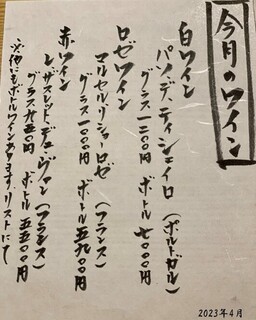 今月のワイン
白ワイン
パソ・デ・ティシェイロ（ポルトガル）
グラス一二〇〇円 ボトル七〇〇〇円
ロゼワイン
マルセル・リショー・ロゼ（フランス）
グラス一〇〇〇円 ボトル五九〇〇円
赤ワイン
レ・ザスレット・デュ・ヴァン（フランス）
グラス九五〇円 ボトル五五〇〇円
※他にもボトルワインあります。リストにて
2023年4月